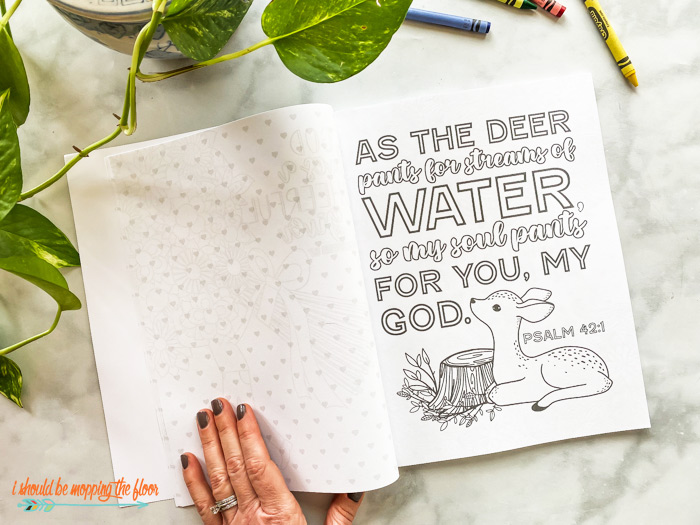 AS THE DEER
pants for streams of
WATER,
so my soul pants
FOR YOU, MY
GOD.
PSALM 42:1
i should be mopping the floor